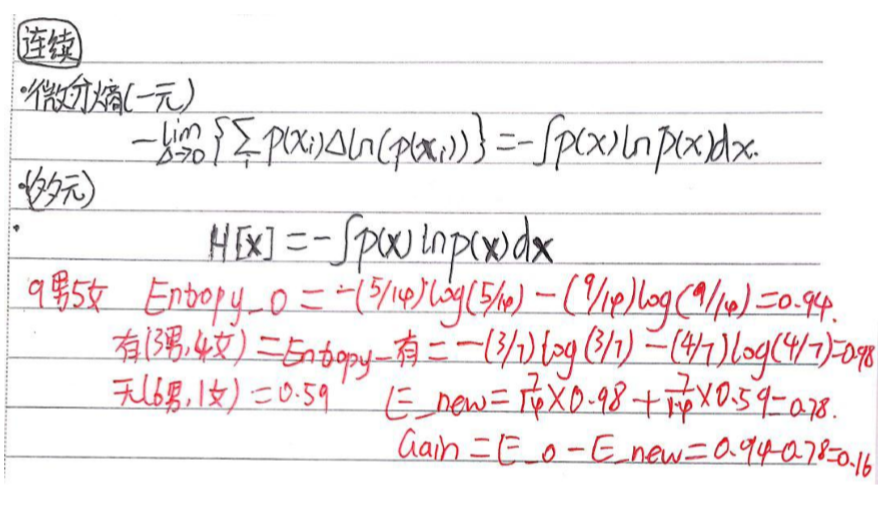 连续
·微分熵(一元)
-lim Δ→0 {∑i p(xi)Δln(p(xi))} = -∫p(x)lnp(x)dx.
·(多元)
· H[x] = -∫p(x)lnp(x)dx
9男5女 Entropy_0 = -(5/14)*log(5/14) - (9/14)log(9/14) = 0.94.
有(3男,4女) = Entropy_有 = -(3/7)log(3/7) - (4/7)log(4/7) = 0.98
无(6男,1女) = 0.59 E_new = 7/14×0.98 + 7/14×0.59 = 0.78.
Gain = E_0 - E_new = 0.94-0.78=0.16